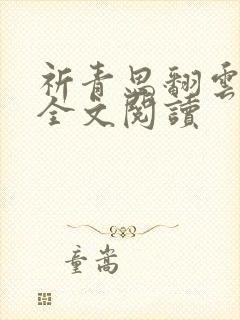 祈青思翻雲
全文閱讀
童嵩